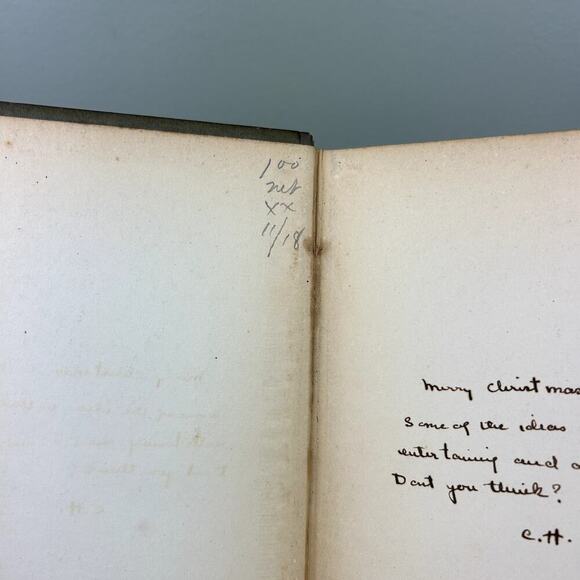 1 00
net
xx
11/18
Merry Christmas
Some of the ideas
entertaining and
Dont you think?
C.H.